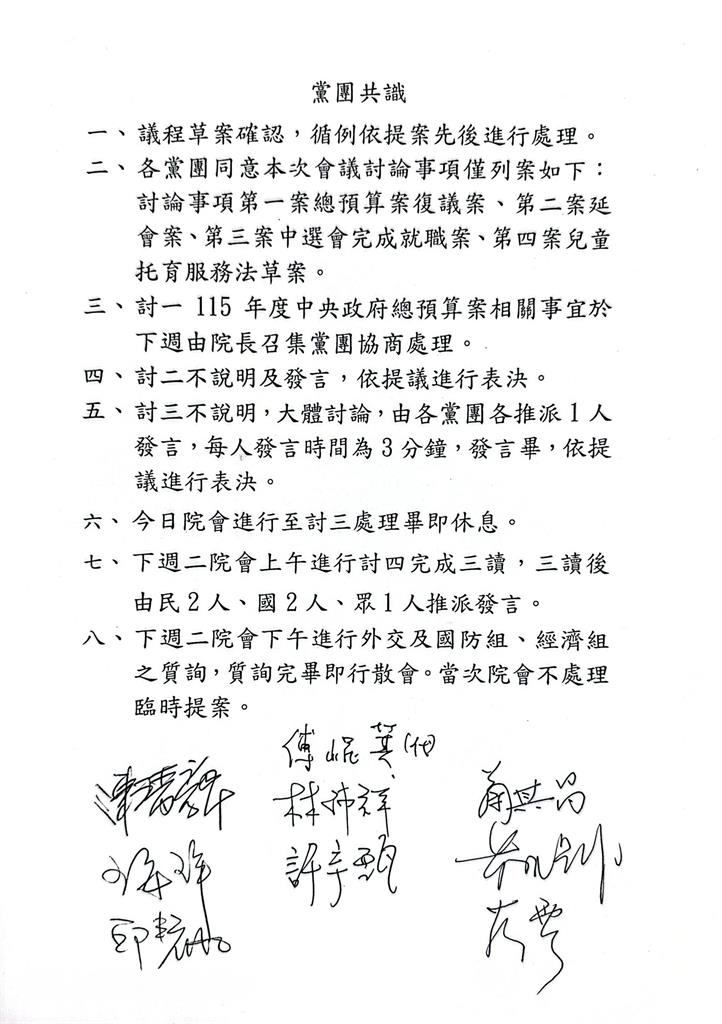 黨團共識
一、議程草案確認，循例依提案先後進行處理。
二、各黨團同意本次會議討論事項僅列案如下：
討論事項第一案總預算案復議案、第二案延
會案、第三案中選會完成就職案、第四案兒童
托育服務法草案。
三、討一 115 年度中央政府總預算案相關事宜於
下週由院長召集黨團協商處理。
四、討二不說明及發言，依提議進行表決。
五、討三不說明，大體討論，由各黨團各推派1人
發言，每人發言時間為3分鐘，發言畢，依提
議進行表決。
六、今日院會進行至討三處理畢即休息。
七、下週二院會上午進行討四完成三讀，三讀後
由民2人、國2人、眾1人推派發言。
八、下週二院會下午進行外交及國防組、經濟組
之質詢，質詢完畢即行散會。當次院會不處理
臨時提案。
傅崐萁(代)
林沛祥
許宇甄